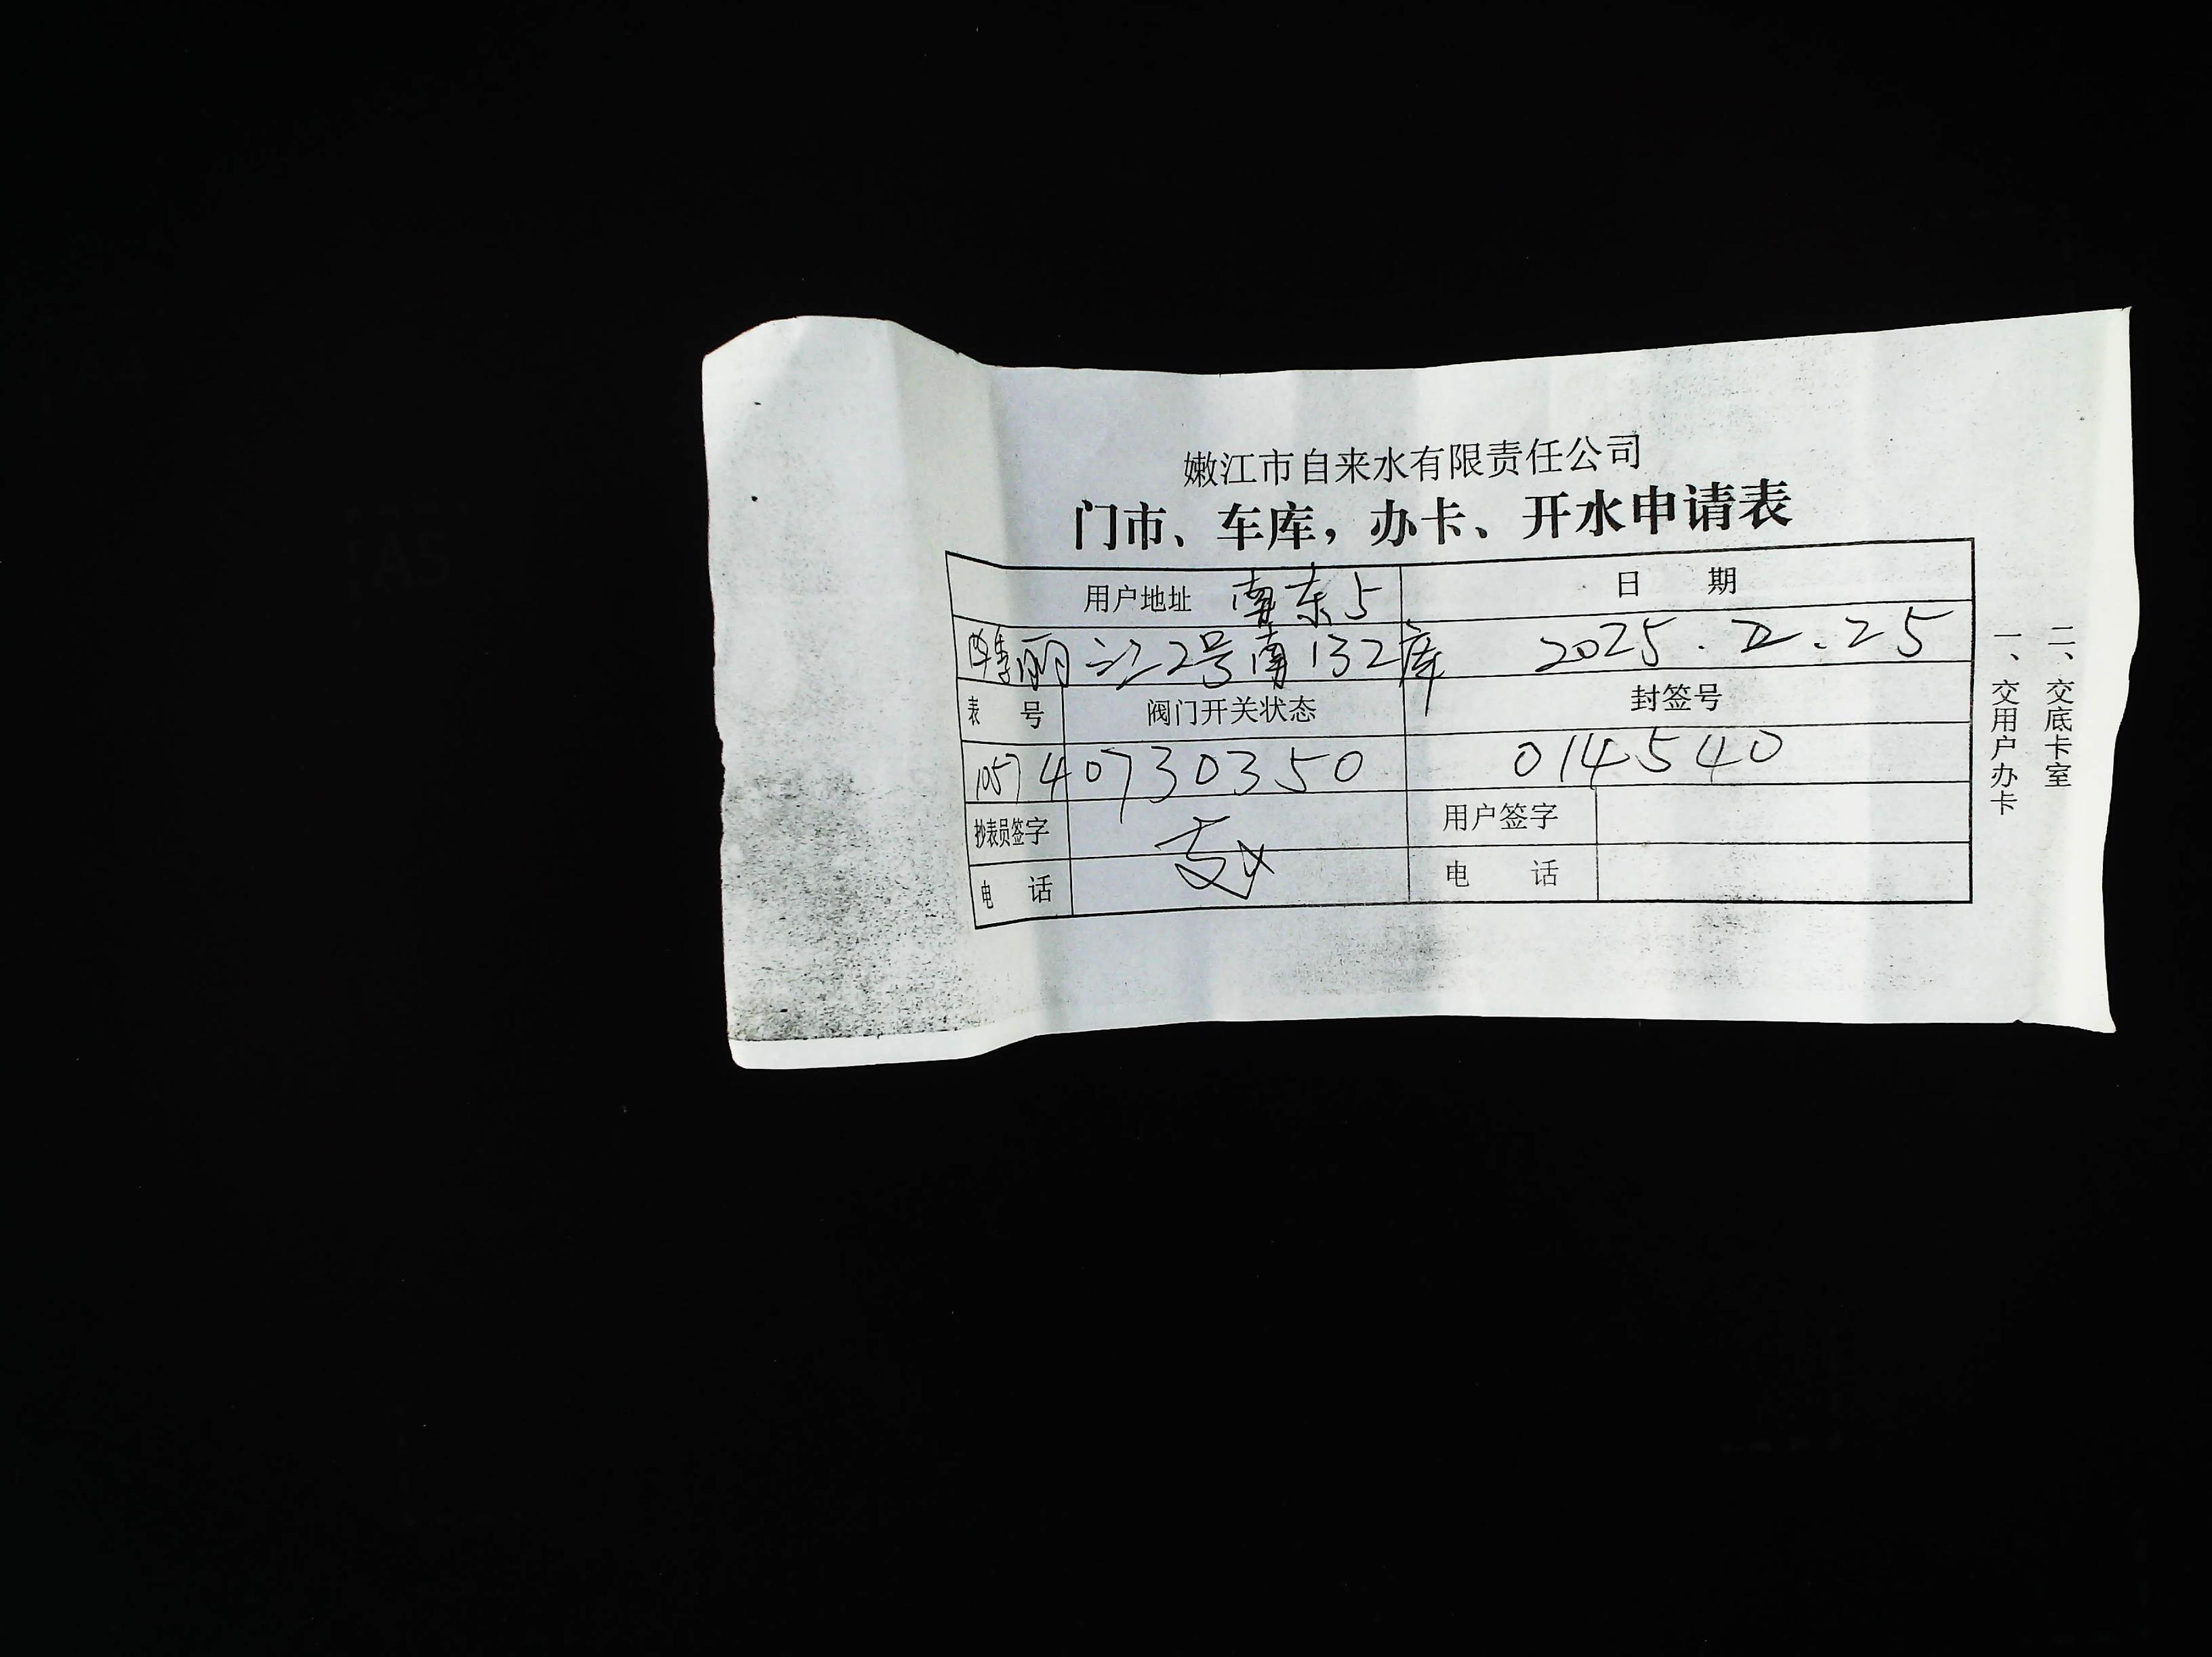 嫩江市自来水有限责任公司
门市、车库，办卡、开水申请表
用户地址 南东5
日 期
丽江2号南132库
2025. 12. 25
表 号
阀门开关状态
封签号
105740730350
014540
抄表员签字
用户签字
电 话
电 话
一、交用户办卡
二、交底卡室